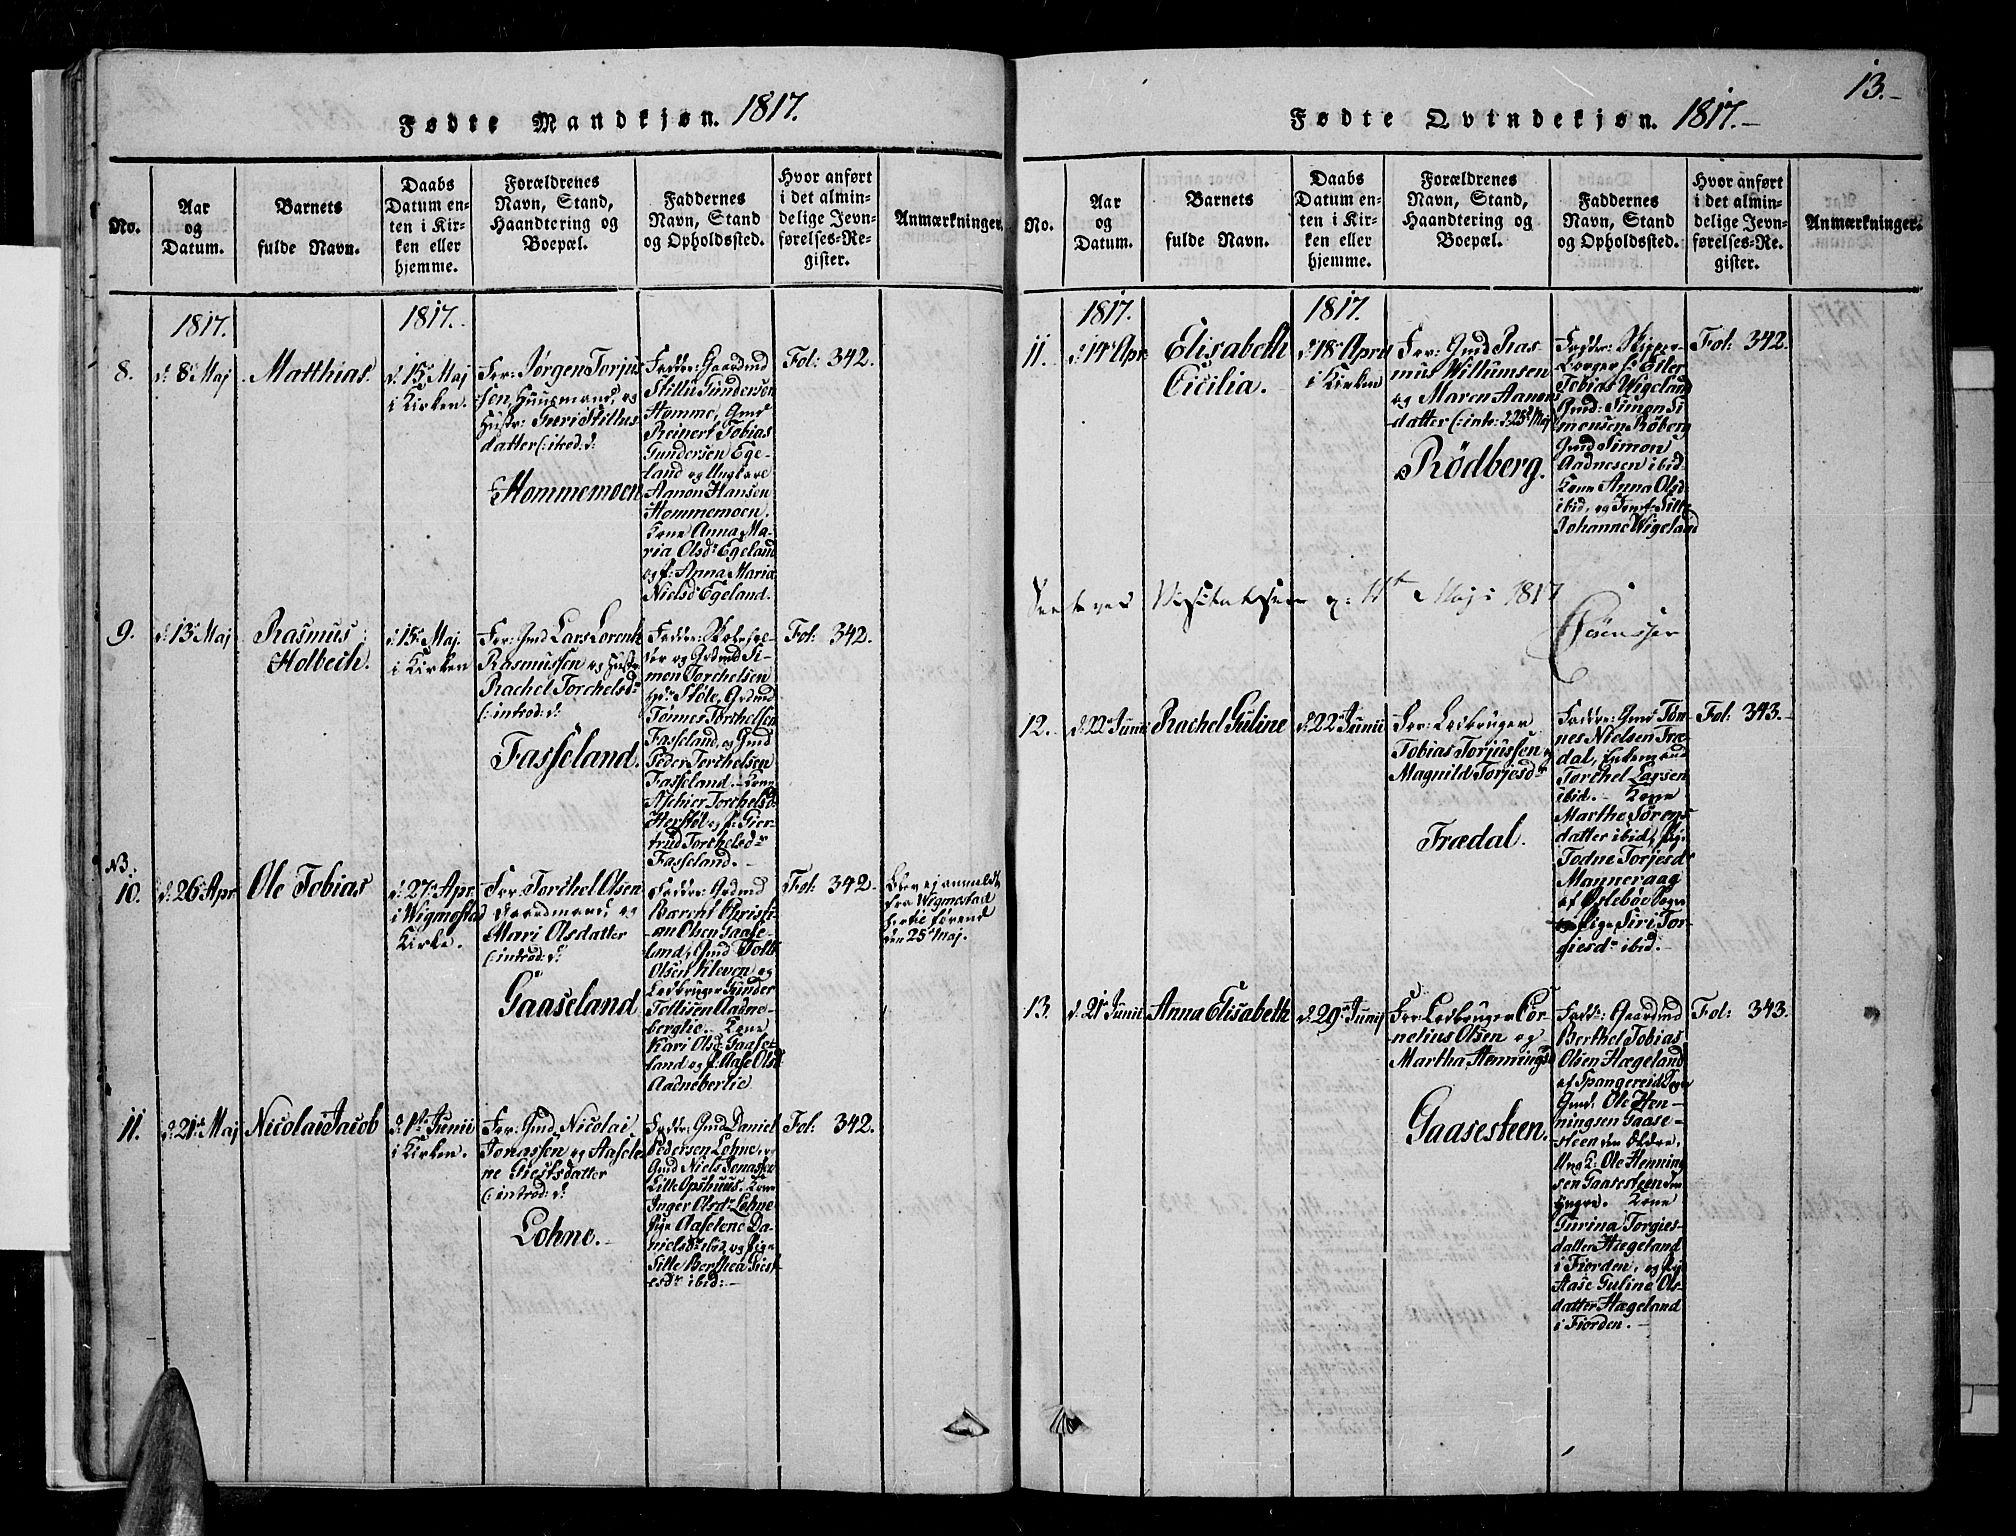 Fødte Mandkjøn. 1817.
No.
Aar
og
Datum.
Barnets
fulde Navn.
Daabs
Datum en-
ten i Kir-
ken eller
hjemme.
Forældrenes
Navn, Stand,
Haandtering og
Boepæl.
Faddernes
Navn, Stand
og Opholdssted.
Hvor anført
i det almin-
delige Jevn-
førelses-Re-
gister.
Anmærkninger.
1817.
1817.
8.
d: 8de Maj
Matthias
d: 15de Maj
i Kirken.
For: Jørgen Torjus
sen, Huusmand, og
Hustr:
datter (: introd: d:
Hommemoen
Fadd: Gaardmd
Gundersen
Homme, Gmd
Reinert Tobias
Gundersen Ege-
land og Ungkarl
Aanon Hansen
Hommemoen.
Kone Anna Ma-
ria Olsdr Egeland
og p: Anna Maria
Nielsd Egeland.
Fol: 342.
9.
d: 13de Maj
Rasmus
Holbech.
d: 15de Maj.
i Kirken
For: Gmd Lars Lorentz
Rasmussen og Hustr
Rachel Torchelsdr
(: introd: d:
Fasseland.
Faddr:
og Grdmd Si-
mon Torchelsen
Støle, Grdmd
Tønnes Torchelsen
Fasseland, og Gmd
Peder Torchelsen
Fasseland. - Kone
Torchelsd
og p: Gier-
trud Torchelsdr
Fasseland. -
Fol: 342.
NB.
10.
d: 26de Apr
Ole Tobias
d: 27de Apr
i Wigmostad
Kirke.
For: Torchel Olsen
Gaardmand, og
Mari Olsdatter
(: introd: d:
Gaaseland
Fadd: Grdmd
Barent Christi-
an Olsen Gaase-
land, Gmd
Olsen Kleven og
Ledbruger Gunder
Tollisen Aadne-
berglie. - Kone
Kari Olsd: Gaase-
land og p: Aase Olsd
Aadneberlie
Fol: 342.
Blev ej anmeldt
fra Wigmostad
førend
den 25de Maj.
11.
d: 21de Maj
Nicolai Jacob
d: 1ste Junii
i Kirken.
For: Gmd Nicolai
Jonassen og Aasele-
ne Giertsdatter
(: introd: d:
Lohne. -
Fadd: Gmd Daniel
Pedersen Lohne, og
Gmd Niels Jonassen
Lille Opshuus. Kone
Inger Olsdr Lohne
Pige Aaselene Da-
nielsdr ibid og Pige
Sille Berthea Giert-
sdr ibid: -
Fol: 342.
13. -
Fødte Qvindekjøn. 1817. -
No.
Aar
og
Datum.
Barnets
fulde Navn.
Daabs
Datum en-
ten i Kir-
ken eller
hjemme.
Forældrenes
Navn, Stand,
Haandtering og
Boepæl.
Faddernes
Navn, Stand
og Opholdssted.
Hvor anført
i det almin-
delige Jevn-
førelses-Re-
gister.
Anmærkninger.
1817.
1817.
11.
d: 14de Apr:
Elisabeth
Cicilia.
d: 18de April
i Kirken
For: Gmd Ras-
mus Willumsen
og Maren Aanons
datter (: intr: d: 25de Maj
Rödberg.
Faddr: Skipper-
Eiler
Tobias Wigeland
Gmd: Simon Si-
monsen Röberg
Gmd Simon
Aadnesen ibid
Kone Anna Olsd
ibid, og
Johanne Wigeland
Fol: 342.
Seet ved Visitatsen d: 11te Maji 1817
12.
d: 22de Junii
Rachel Guline
d: 22de Junii
For: Ledbruger
Tobias Torjussen og
Magnild Torjesdr
Frædal.
Faddr: Gmd Tön-
nes Nielsen Fræ-
dal, Enkemand
Torchel Larsen
ibid. - Kone
Marthe Sörens-
datter ibid, Pige
Todne Torjesdr
Manneraag
af Oslebøe Sogn
og Pige Siri Tor-
giesdr ibid. -
Fol: 343.
13.
d: 21de Junii
Anna Elisabeth
d: 29de Junij
For: Ledbruger Cor-
nelius Olsen og
Martha Hennings
Gaasesteen.
Fadd: Gaardmd
Berthel Tobias
Olsen Hægeland
af Spangereid Sogn
Gmd. Ole Hen-
ningsen Gaase-
steen den Ældre,
Ungk: Ole Henning-
sen Gaasesteen den
Yngre. Kone
Gurina Torgies-
datter Hægeland
i Fiorden, og Pige
Aase Guline Ols-
datter Hægeland
i Fiorden. -
Fol: 343.